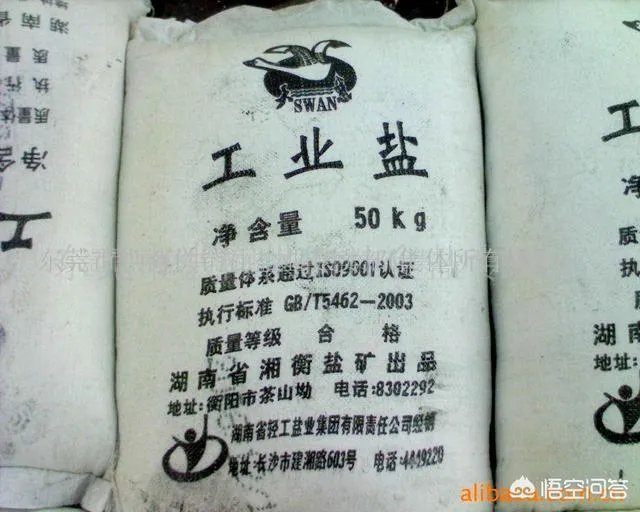 SWAN
工业盐
净含量 50kg
质量体系通过ISO9001认证
执行标准 GB/T5462-2003
质量等级 合格
湖南省湘衡盐矿出品
地址:衡阳市茶山坳 电话:8302292
湖南省轻工盐业集团有限责任公司经销
地址:长沙市建湘路603号 电话:4449220
湖南省
质量
执行
质量体
净含
工
净
质量
执行
质量
湖南
地址:
alibaba
悟空问答